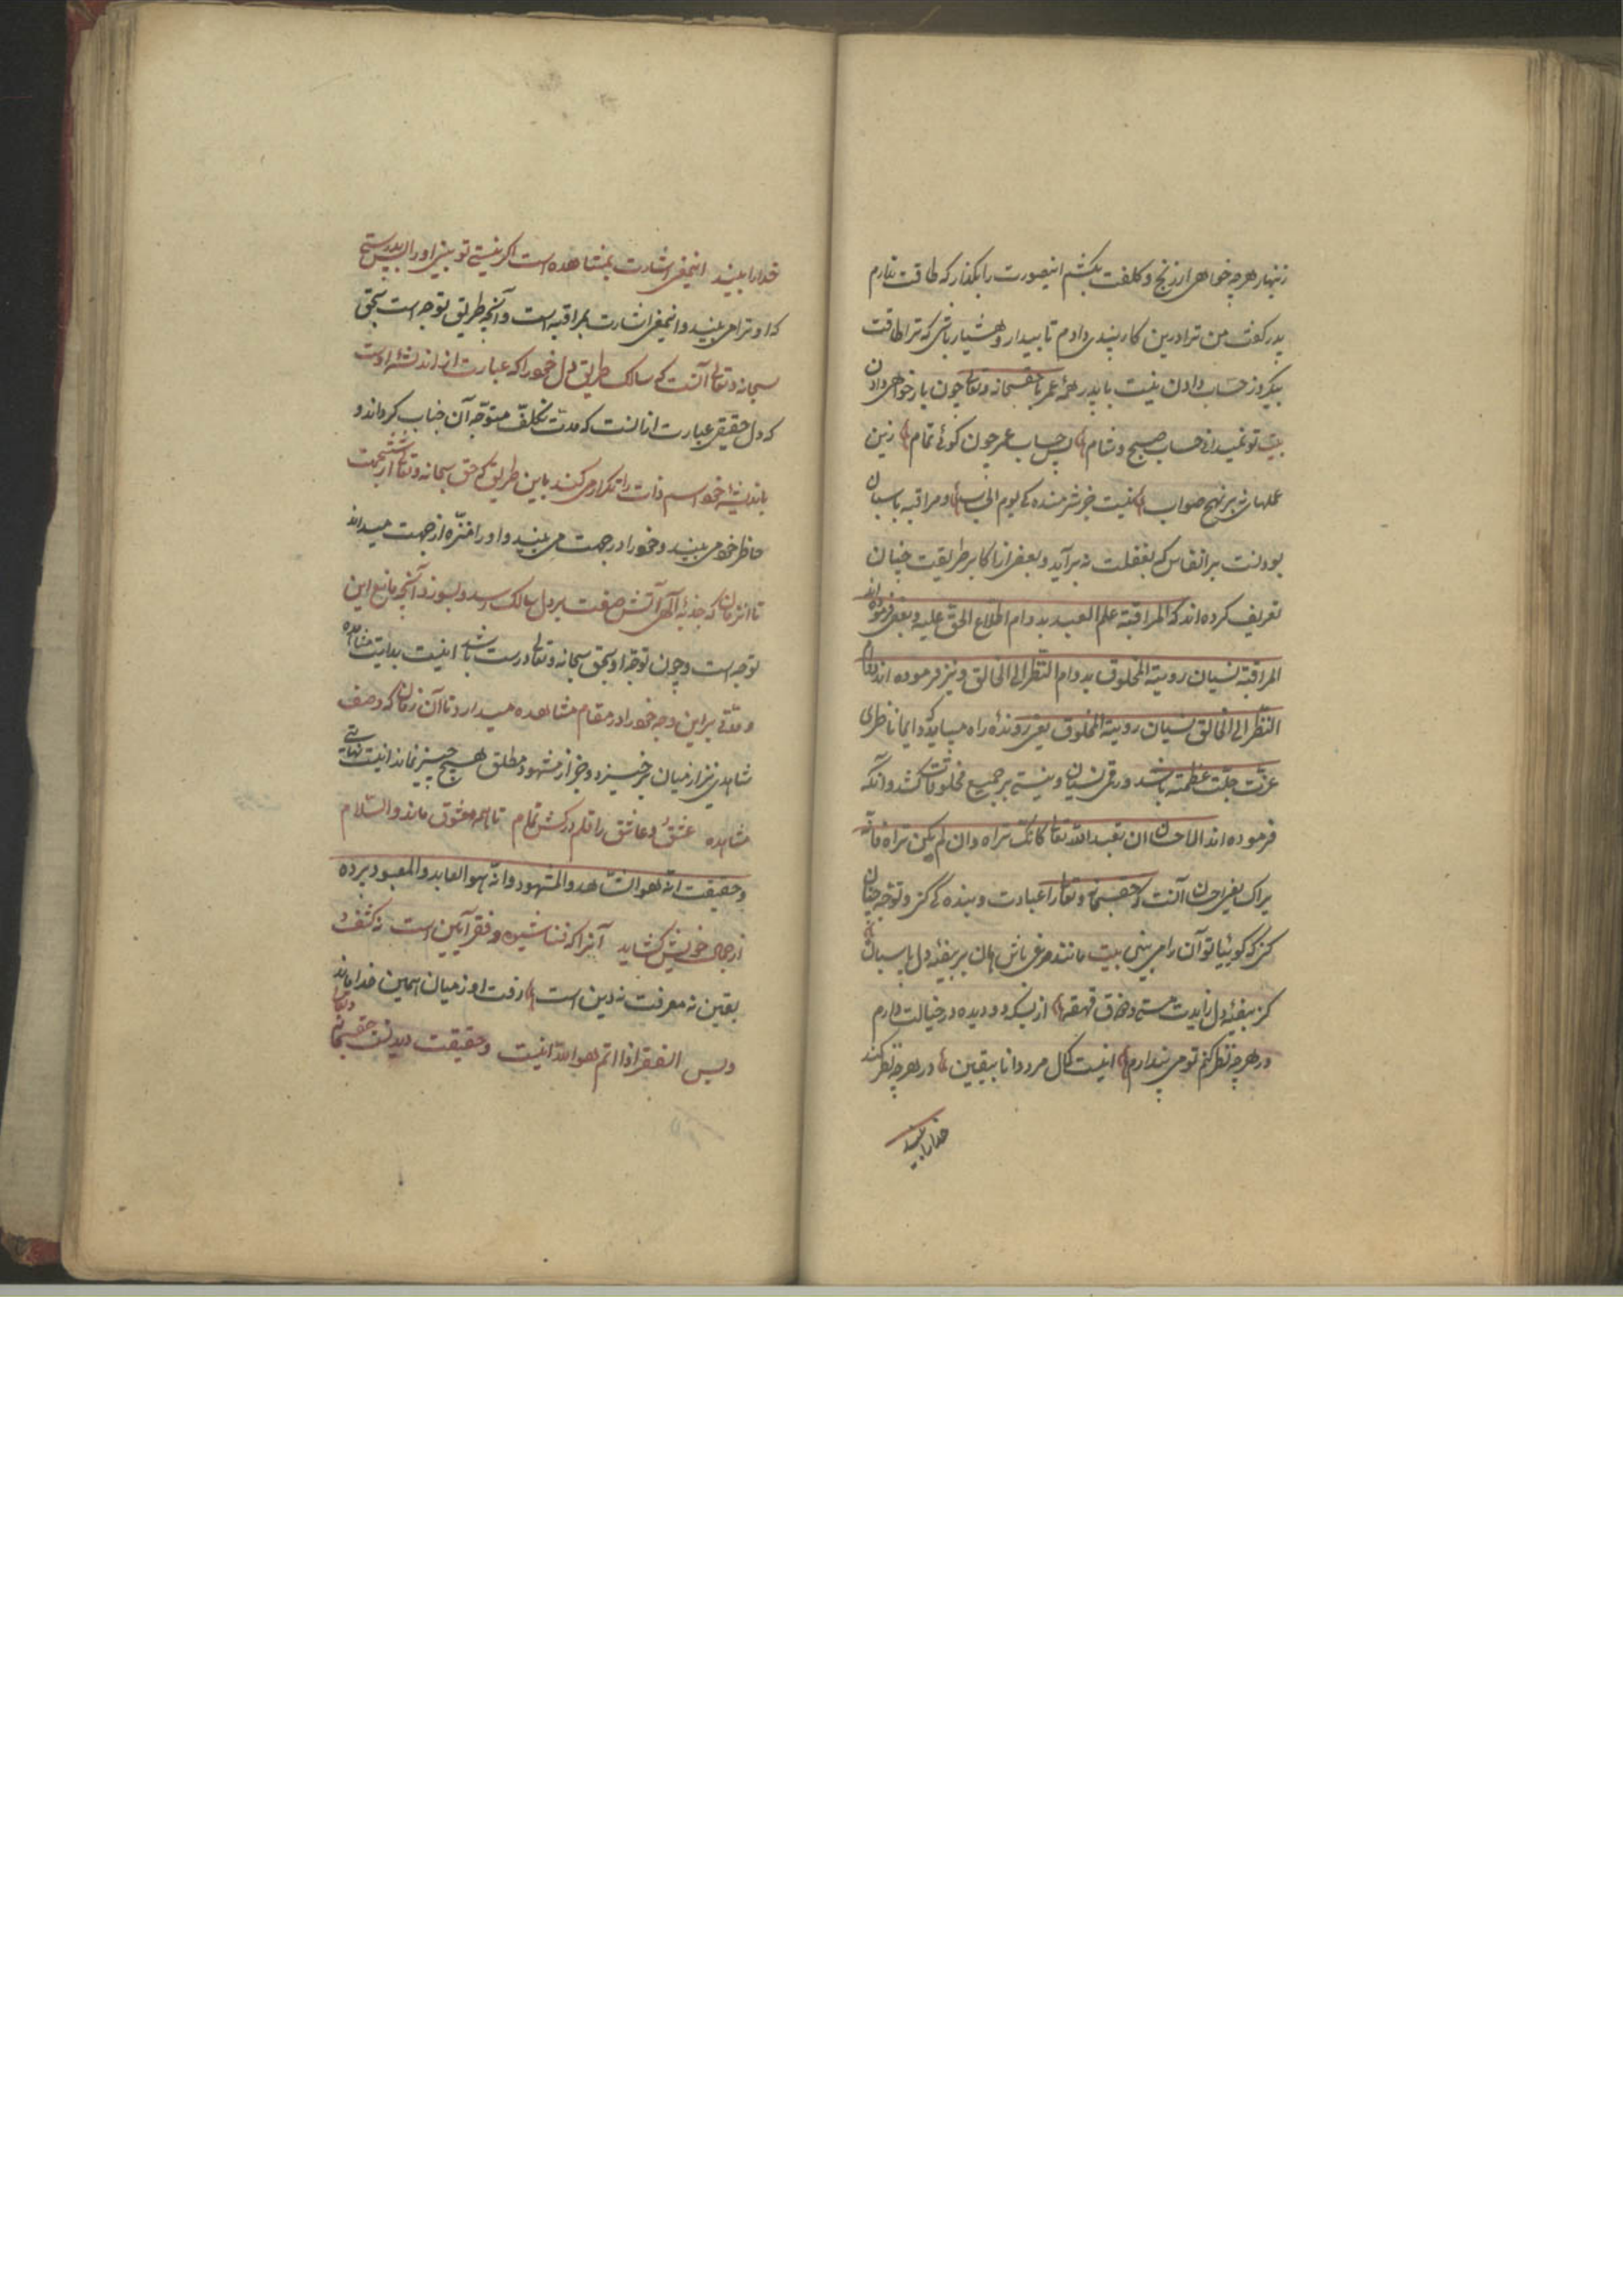 زینهار هرچه خواهی از رنج و کلفت بکشم اینصورت را بگذار که طاقت ندارم
پدر گفت من ترا درین کار پندی دادم تا بیدار و هشیار باشی که ترا طاقت
یکروز حساب دادن نیست با پدر همه عمر با حقسبحانه وتعالی چون بار خواهی دادن
بیت تو نمیدانی حساب صبح و شام پس حساب عمر چون گوئی تمام زین
عملهای نه بر نهج صواب نیست جز شرمنده کی یوم الحساب و مراقبه پاسبان
بودنست بر انفاس که بغفلت نه برآید و بعضی از اکابر طریقت چنان
تعریف کرده اند که المراقبة علم العبد بدوام اطلاع الحق علیه و بعضی فرموده اند
المراقبة نسیان رویة المخلوق بدوام النظر الی الخالق و نیز فرموده اند دوام
النظر الی الخالق نسیان رویة المخلوق یعنی رونده راه میباید که دایما ناظر
عزت جلت عظمته باشد و رقم نسیان و نیستی بر جمیع مخلوقات کشد و آنکه
فرموده اند الاحسان ان تعبد الله تعالی کانک تراه وان لم یکن تراه فانه
یراک یعنی احسان آنست که حقسبحانه وتعالی را عبادت و بنده کی کنی و توجه چنان
کنی که گوئیا تو آن را می بینی بیت مانند مرغی باش هان بر بیضه دل پاسبان
کز بیضه دل زایدت مستی و ذوق قهقهه از بسکه دو دیده در خیالت دارم
در هرچه نظر کنم تو می پندارم اینست کمال مرد دانا بیقین در هرچه نظر کند
خدا را بیند
خدا را بیند اینمعنی اشارت بمشاهده است اگر نیستی تو بینی او را پس بدرستی
که او ترا می بیند و اینمعنی اشارت بمراقبه است و آنچه طریق توجه است بحق
سبحانه وتعالی آنست که سالک طریق دل خود را که عبارت از اندیشه اوست
که دل حقیقی عبارت از انست که مدت تکلف متوجه آن جناب گرداند و
باندیشه خود اسم ذات را تکرار می کند باین طریق که حق سبحانه وتعالی از ششجهت
حاظر خود می بیند و خود را در جهت می بیند و او را منزه از جهت میداند
تا انزمان که جذبه الهی آتش صفت بر دل سالک رسد و بسوزد آنچه مانع این
توجه است و چون توجه او بحق سبحانه وتعالی درست باشد اینست بدایت مشاهده
و مدتی براین وجه خود را در مقام مشاهده میدارد تا آن زمان که وصف
شاهدی نیز از میان برخیزد و جز از مشهود مطلق هیچ چیز نماند اینست نهایت
مشاهده عشق و عاشق را قلم درکش تمام تا همه معشوق ماند والسلام
و حقیقت انه هو الشاهد والمشهود وانه هو العابد والمعبود پرده
از جمال خویش گشاید آنرا که فنا شیوه و فقر آیین است نه کشف و
یقین نه معرفت نه دین است رفت او ز میان همین خدا ماند
و بس الفقر اذا اتم هو الله اینست و حقیقت دیدنست حقسبحانه وتعالی